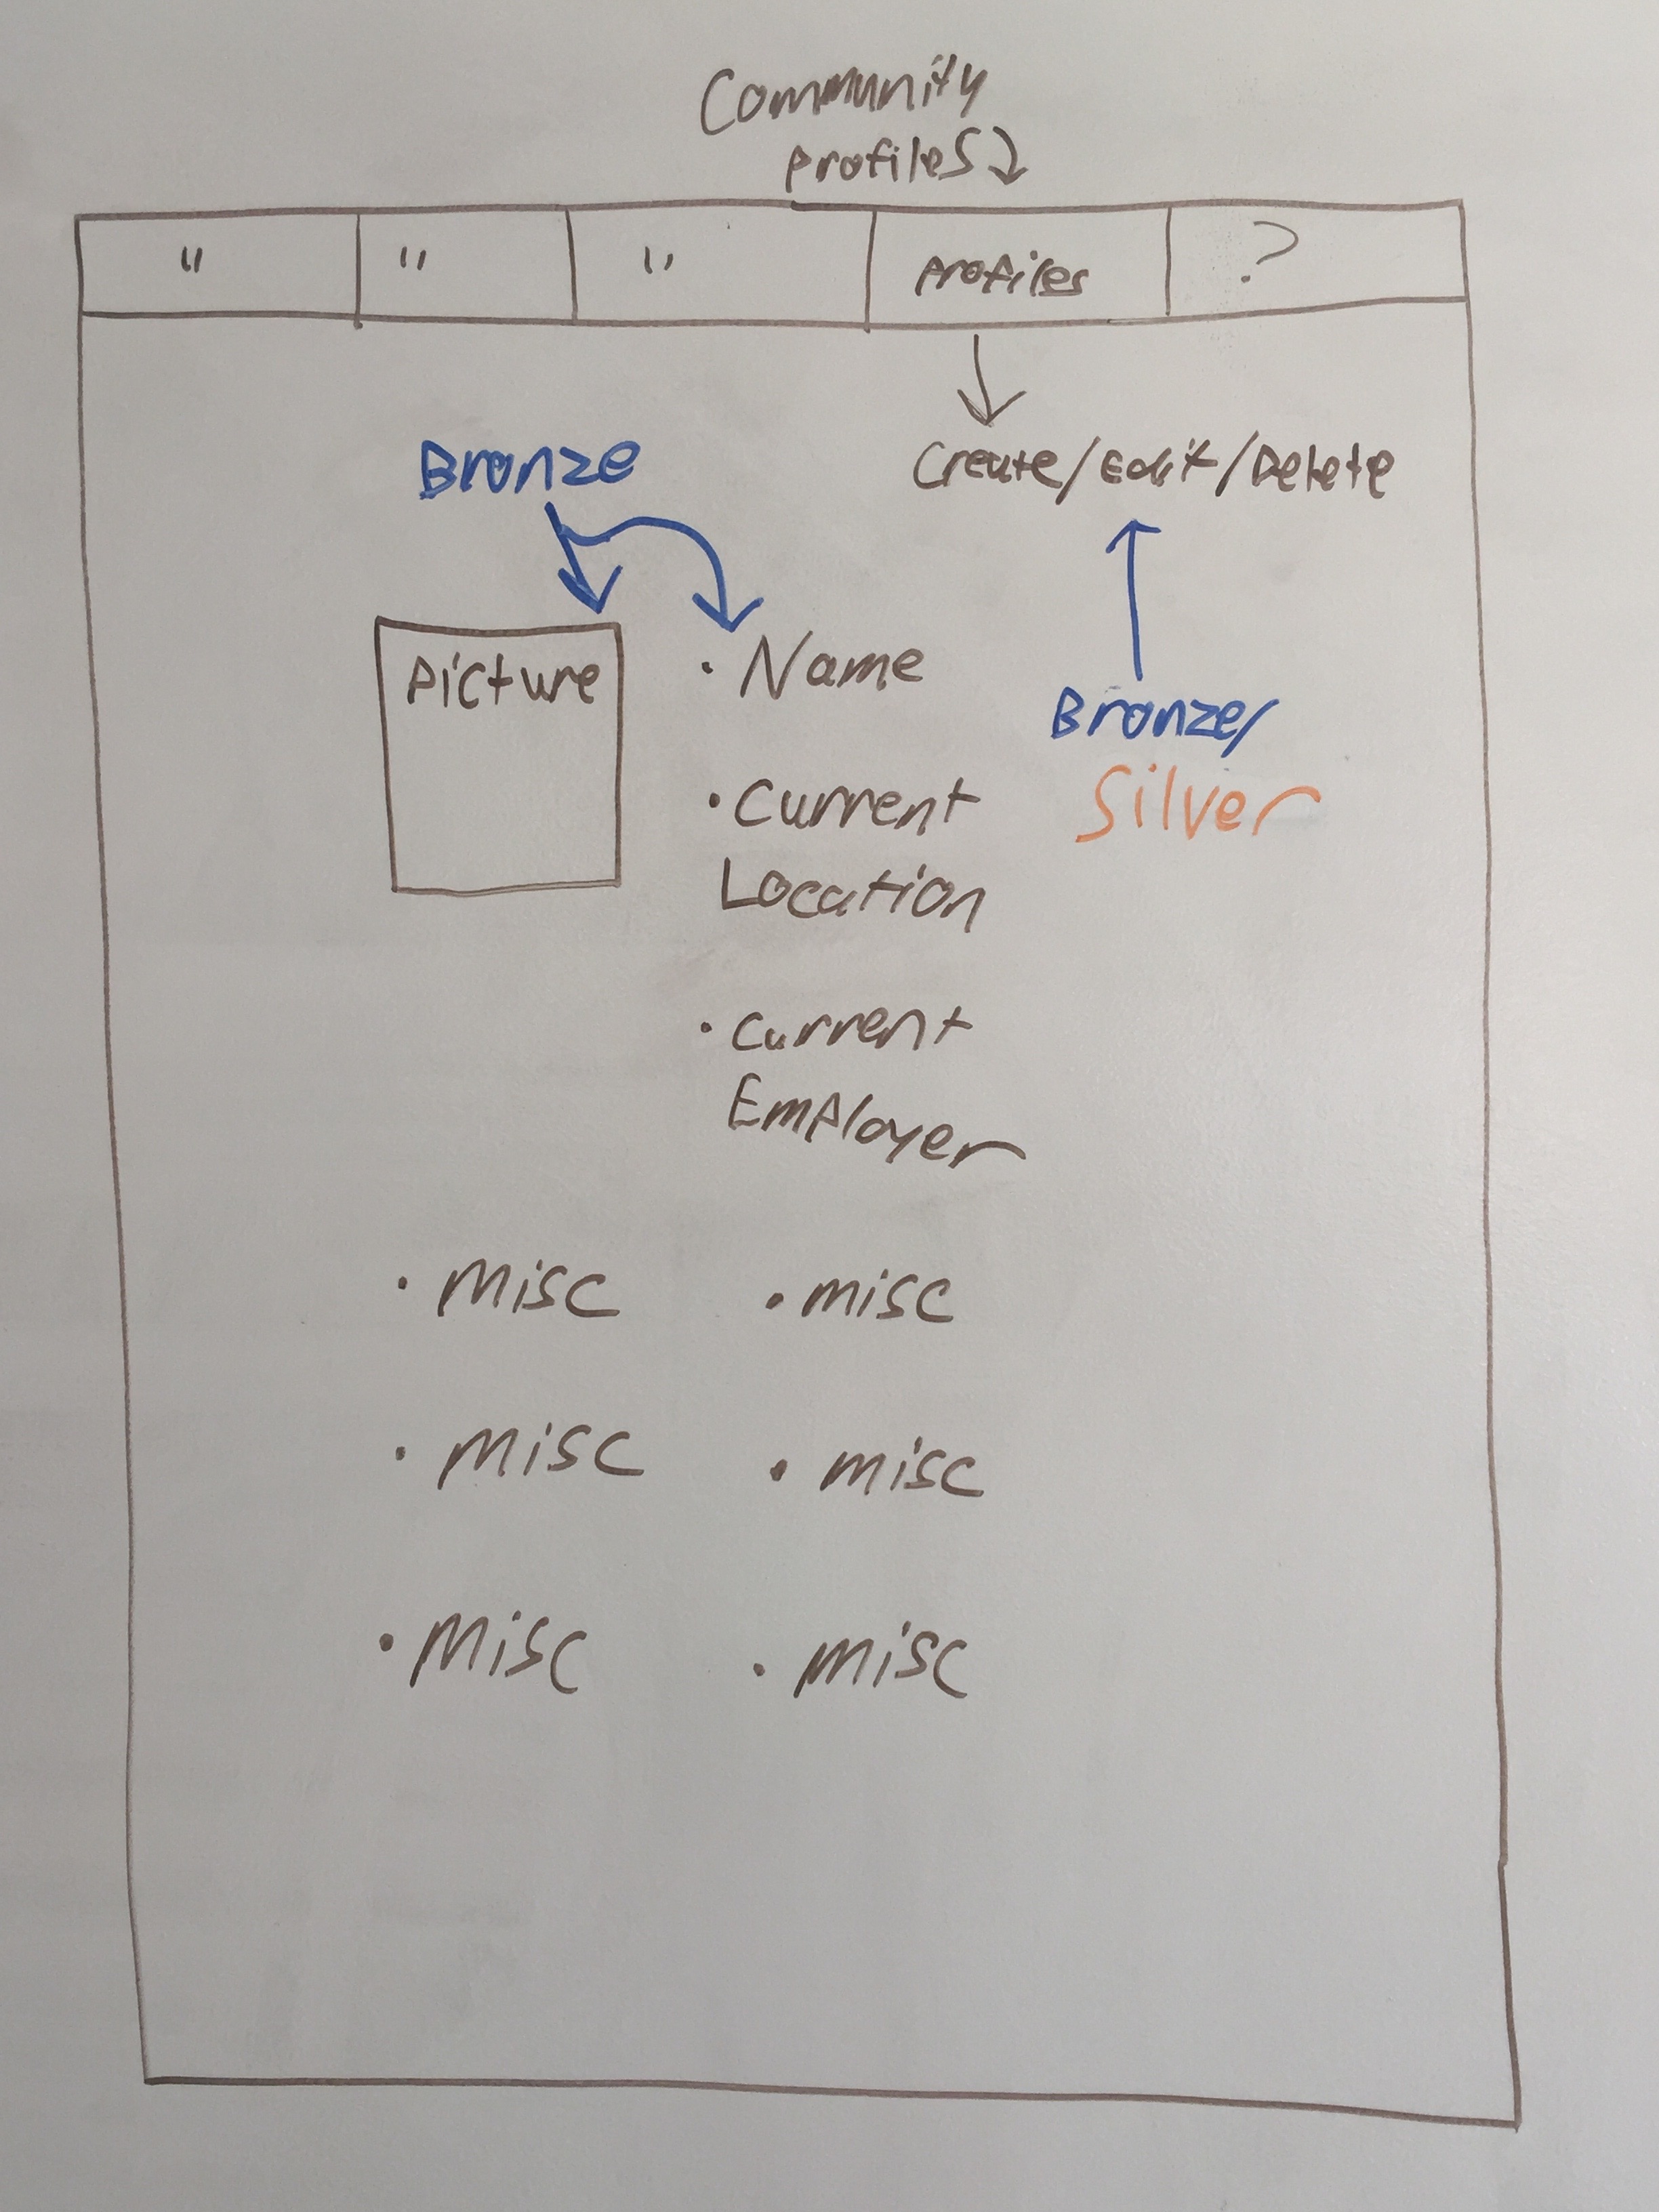 Community
Profiles
" " " Profiles ?
Bronze
Create/Edit/Delete
Picture
• Name
Bronze/
Silver
• Current
Location
• Current
Employer
• misc • misc
• misc • misc
• misc • misc